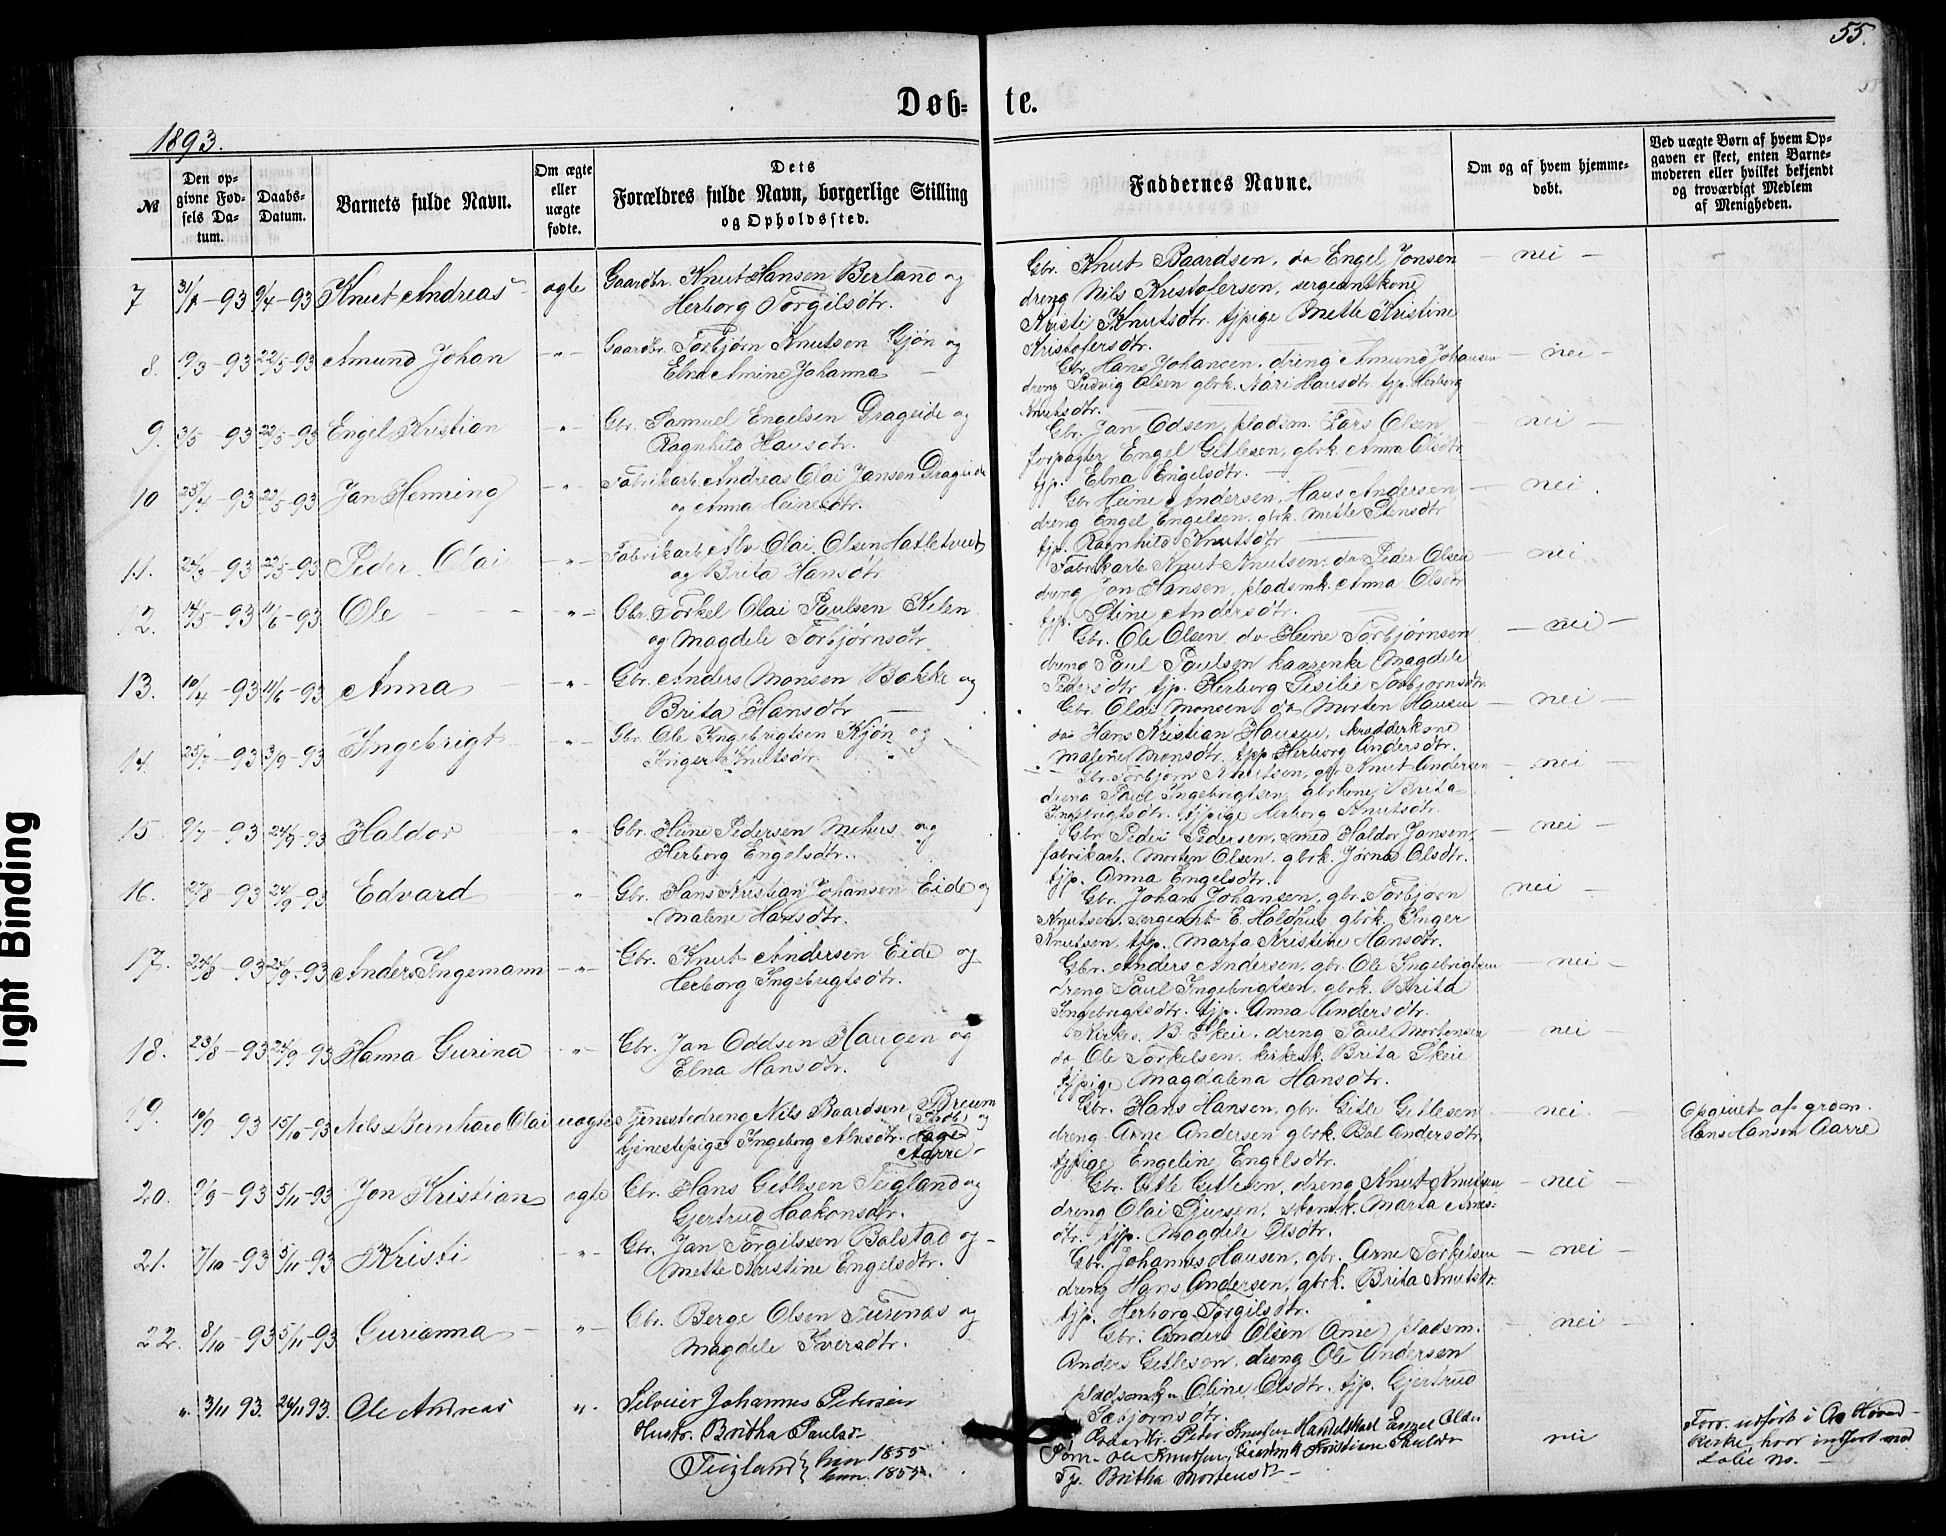 55.
Døb- te.
1893.
№
Den opgivne Fødsels Datum.
Daabs-Datum.
Barnets fulde Navn.
Om ægte eller uægte fødte.
Dets Forældres fulde Navn, borgerlige Stilling og Opholdssted.
Faddernes Navne.
Om og af hvem hjemmedøbt.
Ved uægte Børn af hvem Opgaven er skeet, enten Barnemoderen eller hvilket bekjendt og troværdigt Medlem af Menigheden.
7 31/1-93 9/4-93 Knut Andreas ægte Gaardbr. Knut Hansen Berland og
Herborg Torgilsdtr.
Gbr. Knut Baardsen, do Engel Jonsen - nei -
dreng Nils Kristofersen, sergeantkone
Kristi Knutsdtr. tjpige Mette Kristine
Kristofersdtr.
8. 9/3-93 22/5-93 Amund Johan -"- Gaardbr. Torbjørn Knutsen Gjøn og
Elna Amine Johanna -
Gbr. Hans Johansen, dreng Amund Johansen - nei -
dreng Ludvig Olsen gbrk. Kari Hansdtr. tjp. Herborg
Knutsdtr.
9. 3/5-93 22/5-93 Engel Kristian -"- Gbr. Samuel Engelsen Drageide og
Ragnhild Hansdtr.
Gbr. Jan Odsen, pladsm. Lars Olsen - nei -
forpagter Engel Gitlesen, gbrk. Anna Olsdtr
tjp. Elna Engelsdtr.
10 25/4-93 22/5-93 Jan Henning -"- Fabrikarb. Andreas Olai Jansen Drageide
og Anna Heinesdtr.
Gbr Heine Andersen, Hans Andersen - nei
dreng Engel Engelsen. gbrk. Mette Stensdtr
tjp. Ragnhild Knutsdtr
11. 24/3-93 22/5-93 Peder Olai -"- Fabrikarb. Olai Olsen Hatletveit
og Brita Hansdtr.
Fabrikarb Knut Knutsen, do Peder Olsen - nei
dreng Jon Hansen, pladsmk. Anna Olsdtr
tjp. Stine Andersdtr.
12. 14/5-93 11/6-93 Ole -"- Gbr. Torkel Olai Paulsen Kilen
og Magdele Torbjørnsdtr.
Gbr. Ole Olsen, do Heine Torbjørnsen - nei -
dreng Paul Paulsen kaarenke Magdele
Pedersdtr tjp. Herborg Sesilie Torbjørnsdtr.
13. 10/4-93 11/6-93 Anna -"- Gbr. Anders Monsen Bakke og
Brita Hansdtr -
Gbr. Olai Monsen, do Morten Hansen - nei -
do Hans Kristian Hansen, skradderkone
Malene Monsdtr. tjp Herborg Andersdtr.
14. 25/7-93 3/9-93 Ingebrigt -"- Gbr. Ole Ingebrigtsen Kjøn og
Inger Knutsdtr.
Gbr. Torbjørn Knutsen, gbr Knut Andersen - nei -
dreng Paul Ingebrigtsen, gbrkone Brita
Ingebrigtsdtr. tjpige Herborg Knutsdtr.
15. 9/7-93 24/9-93 Haldor -"- Gbr. Heine Pedersen Mehus og
Herborg Engelsdtr.
Gbr Peder Pedersen, smed Haldor Jansen, - nei -
fabrikarb. Morten Olsen, gbrk. Jørna Olsdtr.
tjp. Anna Engelsdtr.
16. 27/8-93 24/9-93 Edvard -"- Gbr. Hans Kristian Johansen Eide og
Malene Hansdtr.
Gbr. Johan Johansen, gbr. Torbjørn nei -
Knutsen, sergeant E. Holdhus gbrk. Inger
Knutsen, tjp. Marta Kristine Hansdtr.
17. 24/8-93 24/9-93 Anders Ingemann -"- Gbr. Knut Andersen Eide og
Herborg Ingebrigtsdtr.
Gbr. Anders Andersen, gbr. Ole Ingebrigtsen - nei -
dreng Paul Ingebrigtsen, gbrk. Brita
Ingebrigtsdtr. tjp. Anna Andersdtr.
18. 23/8-93 24/9-93 Hanna Gurina -"- Gbr. Jan Oddsen Haugen og
Elna Hansdtr.
Kirkes. B. Skeie. dreng Paul Mortensen - nei
do Ole Torkelsen, kirkesk. Brita Skeie
tjpige Magdalena Hansdtr.
19. 10/9 93 15/10-93 Nils Bernhard Olai uægte Tjenestedreng Nils Baardsen
tjenestepige Ingeborg Alnsdtr. Aarre
Gbr. Hans Hansen, gbr. Gitle Gitlesen - nei.
dreng Arne Andersen gbrk. Bol Andersdtr,
tjpige Engeline Engelsdtr.
Opgivet af grdm.
Hans Hansen Aarre
20. 9/9-93 5/11-93 Jon Kristian ægte Gbr. Hans Gitlesen Teigland og
Gjertrud Haakonsdtr.
Gbr. Gitle Gitlesen, dreng Knut Knutsen - nei
dreng Olai Sjursen, skomk. Marta Arnes-
dtr. tjp. Magdele Olsdtr.
21. 7/10-93 5/11-93 Kristi -"- Gbr. Jan Torgilssen Bolstad og -
Mette Kristine Engelsdtr.
Gbr. Johannes Hansen, gbr. Arne Torkelsen - nei -
dreng Hans Andersen, gbrk. Brita Knutsdtr.
tjp. Herborg Torgilsdtr.
22. 8/10-93 5/11-93 Gurianna - "- Gbr. Berge Olsen Turenæs og
Magdele Iversdtr.
Gbr. Anders Olsen Arne pladsm. - nei -
Anders Gitlesen, dreng Ole Andersen
pladsmk. Oline Olsdtr. tjp. Gjertrud
Torbjørnsdtr.
". 3/11 93. 26/11 93. Ole Andreas ". Selveier Johannes Petersen
Hustr. Britha Paulsdtr
Teigland } han 1855
hun 1855.
Gaardbr. Peter Knutsen Handelskarl Engel Olai nei
Søm. Ole Knutsen, Gaardmk Kristiane Paulsdtr
Tj. Britha Mortensdtr -
Forr. udført i Aa Hoved-
kirke, hvor indført med
Løbe No. -
Tight Binding